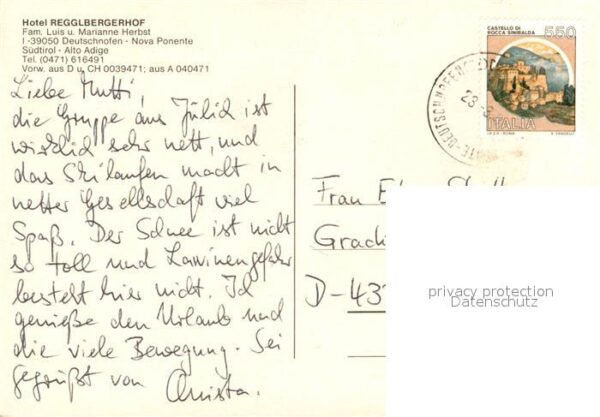 Hotel REGGLBERGERHOF
Fam. Luis u. Marianne Herbst
I-39050 Deutschnofen - Nova Ponente
Südtirol - Alto Adige
Tel. (0471) 616491
Vorw. aus D u. CH 0039471; aus A 040471
Liebe Mutti,
die Gruppe aus Jülich ist
wirklich sehr nett, und
das Skilaufen macht in
netter Gesellschaft viel
Spaß. Der Schnee ist nicht
so toll und Lawinengefahr
besteht hier nicht. Ich
genieße den Urlaub und
die viele Bewegung. Sei
gegrüßt von Christa.
CASTELLO DI
ROCCA SINIBALDA
550
ITALIA
23-3
Frau
D-43
privacy protection
Datenschutz